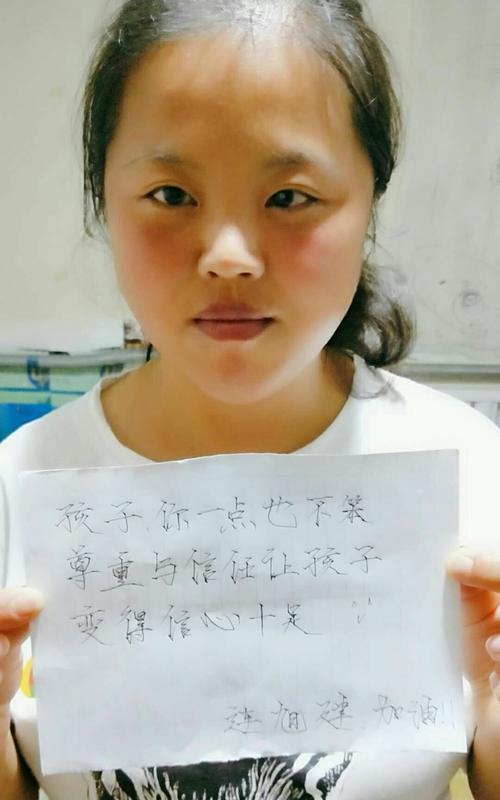 孩子你一点也不笨
尊重与信任让孩子
变得信心十足
连旭建 加油!!